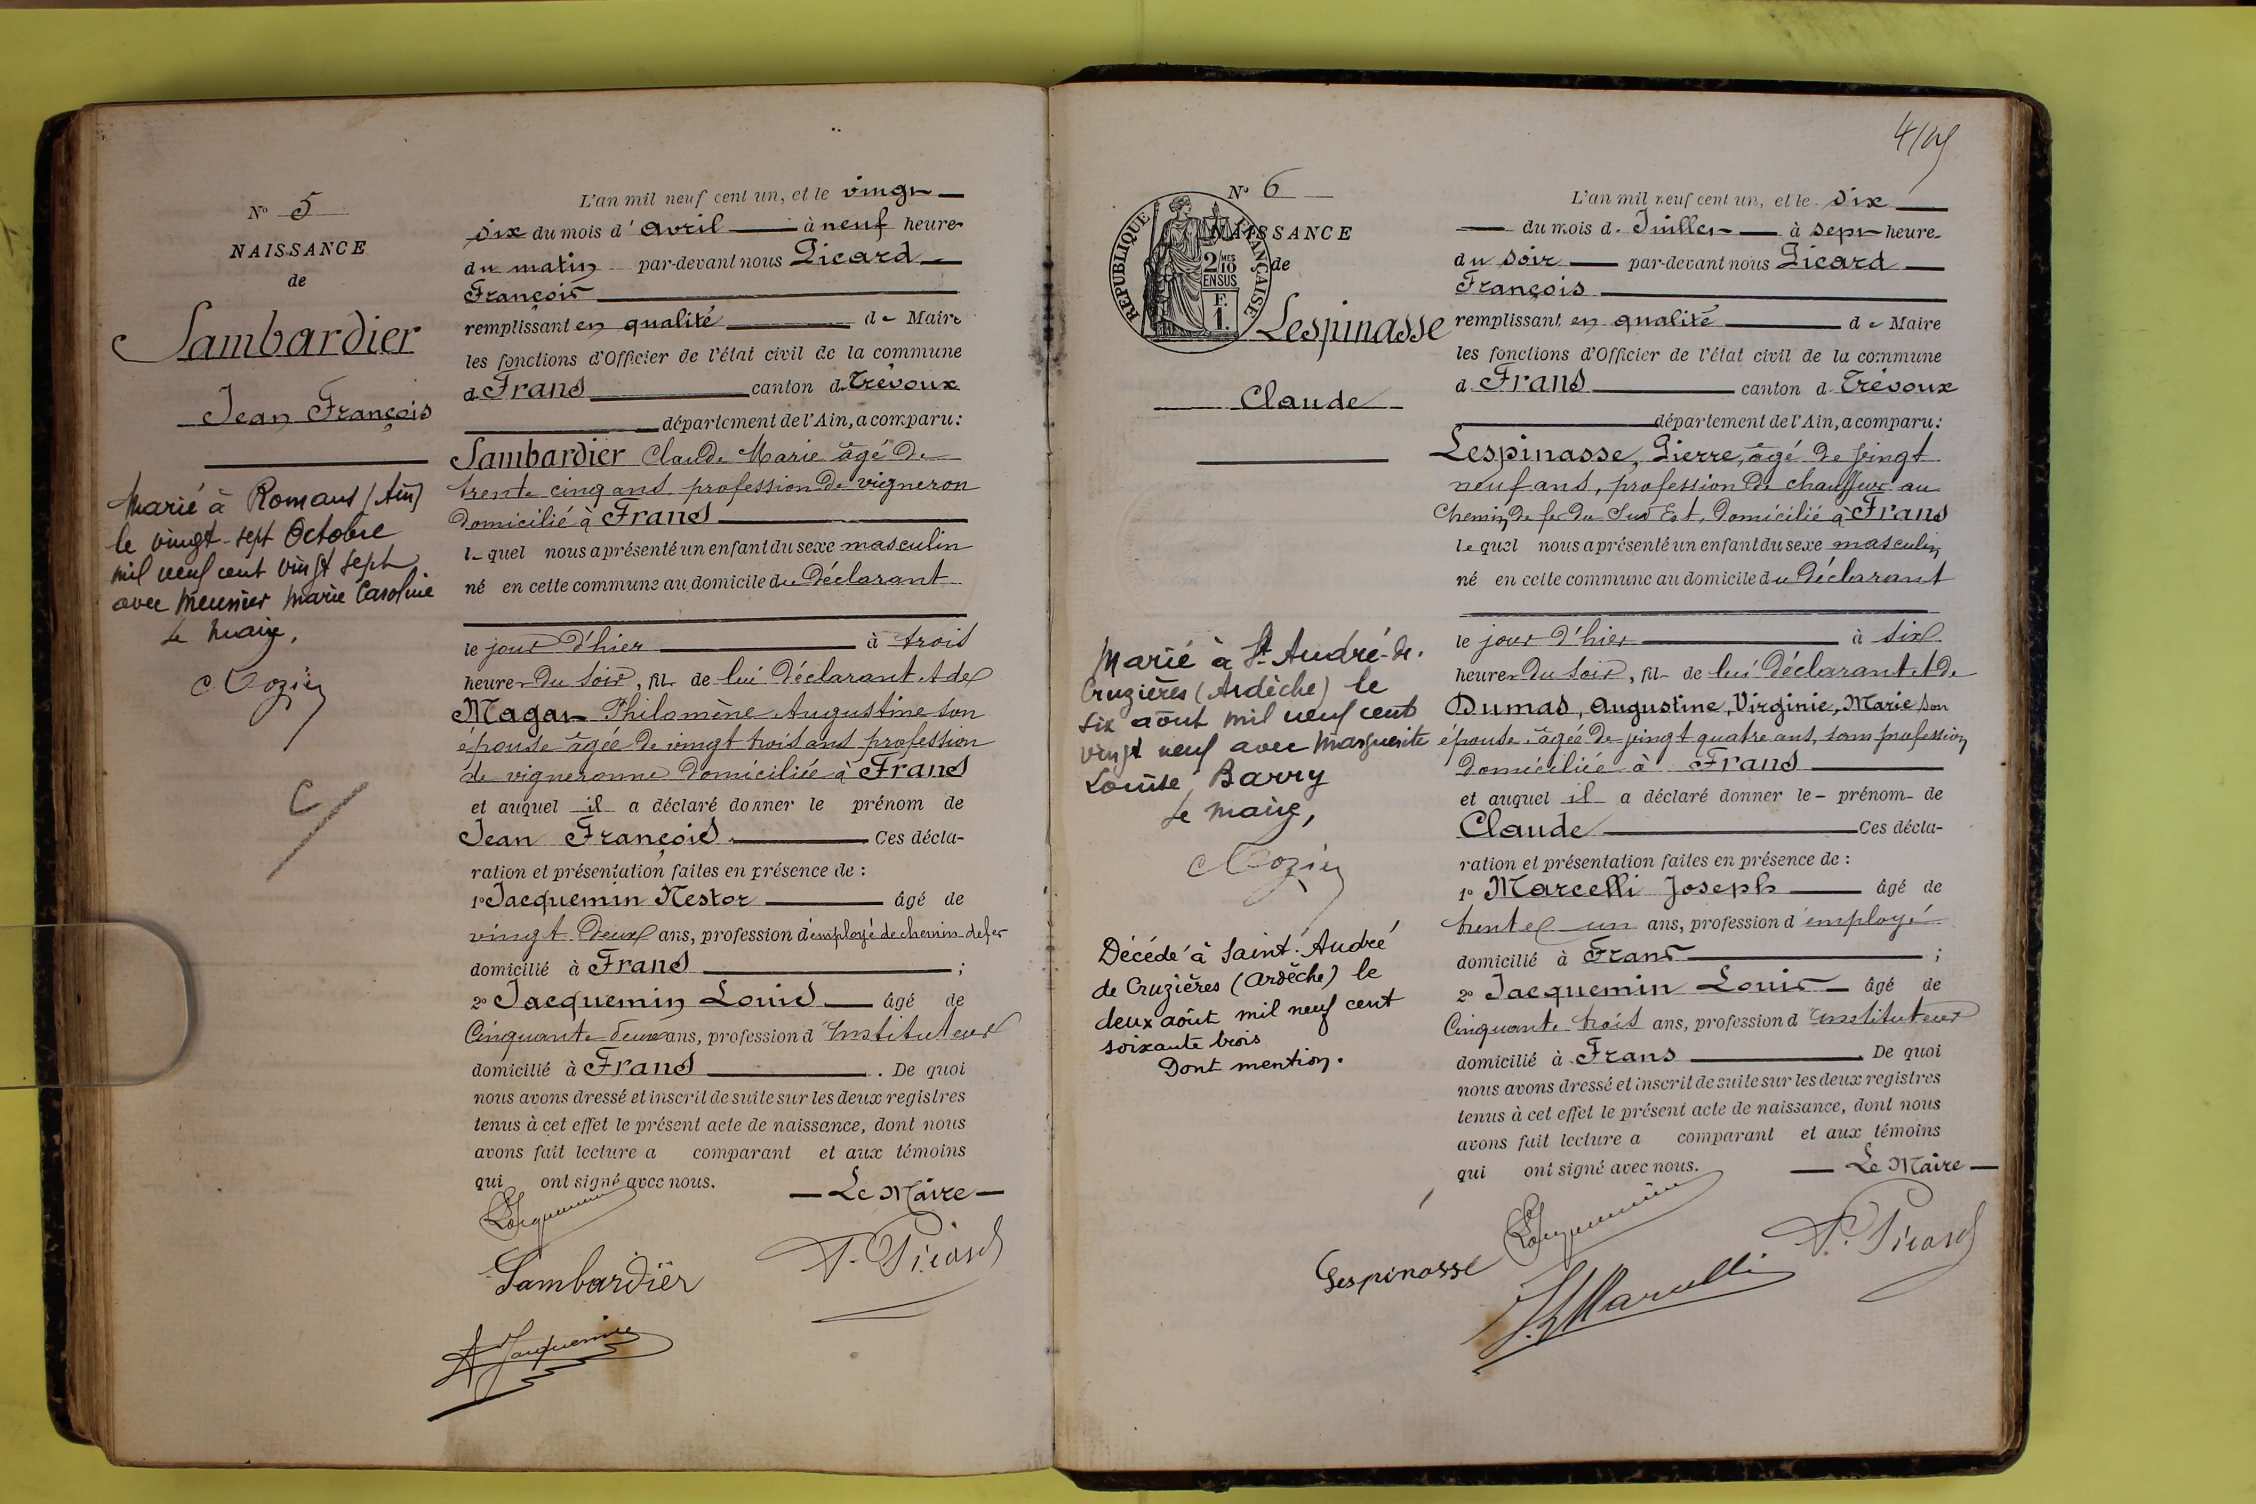 N° 5
NAISSANCE
de
Sambardier
Jean François
Marié à Romans (Ain)
le vingt-sept Octobre
mil neuf cent vingt sept
avec Meunier Marie Caroline
Le Maire,
L'an mil neuf cent un, et le vingt
six du mois d'avril à neuf heures
du matin par-devant nous Picard
François
remplissant en qualité de Maire
les fonctions d'Officier de l'état civil de la commune
d Frans canton d. Trévoux
département de l'Ain, a comparu:
Sambardier Claude Marie âgé de
trente cinq ans profession de vigneron
domicilié à Frans
lequel nous a présenté un enfant du sexe masculin
né en cette commune au domicile du déclarant
le jour d'hier à trois
heures du soir, fils de lui déclarant et de
Magat Philomène Augustine son
épouse âgée de vingt trois ans profession
de vigneronne domiciliée à Frans
et auquel il a déclaré donner le prénom de
Jean François Ces décla-
ration et présentation faites en présence de :
1° Jacquemin Nestor âgé de
vingt deux ans, profession d'employé de chemin de fer
domicilié à Frans ;
2° Jacquemin Louis âgé de
Cinquante deux ans, profession d'Instituteur
domicilié à Frans . De quoi
nous avons dressé et inscrit de suite sur les deux registres
tenus à cet effet le présent acte de naissance, dont nous
avons fait lecture a comparant et aux témoins
qui ont signé avec nous.
Le Maire
Jacquemin
Sambardier
F. Picard
Jacquemin
4/19
N° 6
NAISSANCE
de
RÉPUBLIQUE FRANÇAISE
2/10 MES
EN SUS
F.
1.
Lespinasse
Claude
Marié à St. André-de-
Cruzières (Ardèche) le
six août mil neuf cent
vingt neuf avec Marguerite
Louise Barry
Le Maire,
Décédé à Saint-André
de Cruzières (Ardèche) le
deux août mil neuf cent
soixante trois
Dont mention.
L'an mil neuf cent un, et le dix
du mois d. Juillet à sept heures
du soir par-devant nous Picard
François
remplissant en qualité de Maire
les fonctions d'Officier de l'état civil de la commune
d. Frans canton d. Trévoux
département de l'Ain, a comparu:
Lespinasse, Pierre, âgé de vingt
neuf ans, profession de chauffeur au
Chemin de fer du Sud Est, domicilié à Frans
lequel nous a présenté un enfant du sexe masculin
né en cette commune au domicile du déclarant
le jour d'hier à six
heures du soir, fils de lui déclarant et de
Dumas, Augustine, Virginie, Marie son
épouse, âgée de vingt quatre ans, sans profession
domiciliée à Frans
et auquel il a déclaré donner le prénom de
Claude Ces décla-
ration et présentation faites en présence de :
1° Marcelli Joseph âgé de
trente un ans, profession d'employé
domicilié à Frans ;
2° Jacquemin Louis âgé de
Cinquante trois ans, profession d Instituteur
domicilié à Frans . De quoi
nous avons dressé et inscrit de suite sur les deux registres
tenus à cet effet le présent acte de naissance, dont nous
avons fait lecture a comparant et aux témoins
qui ont signé avec nous.
Le Maire
Jacquemin
Lespinasse
F. Picard
Marcelli